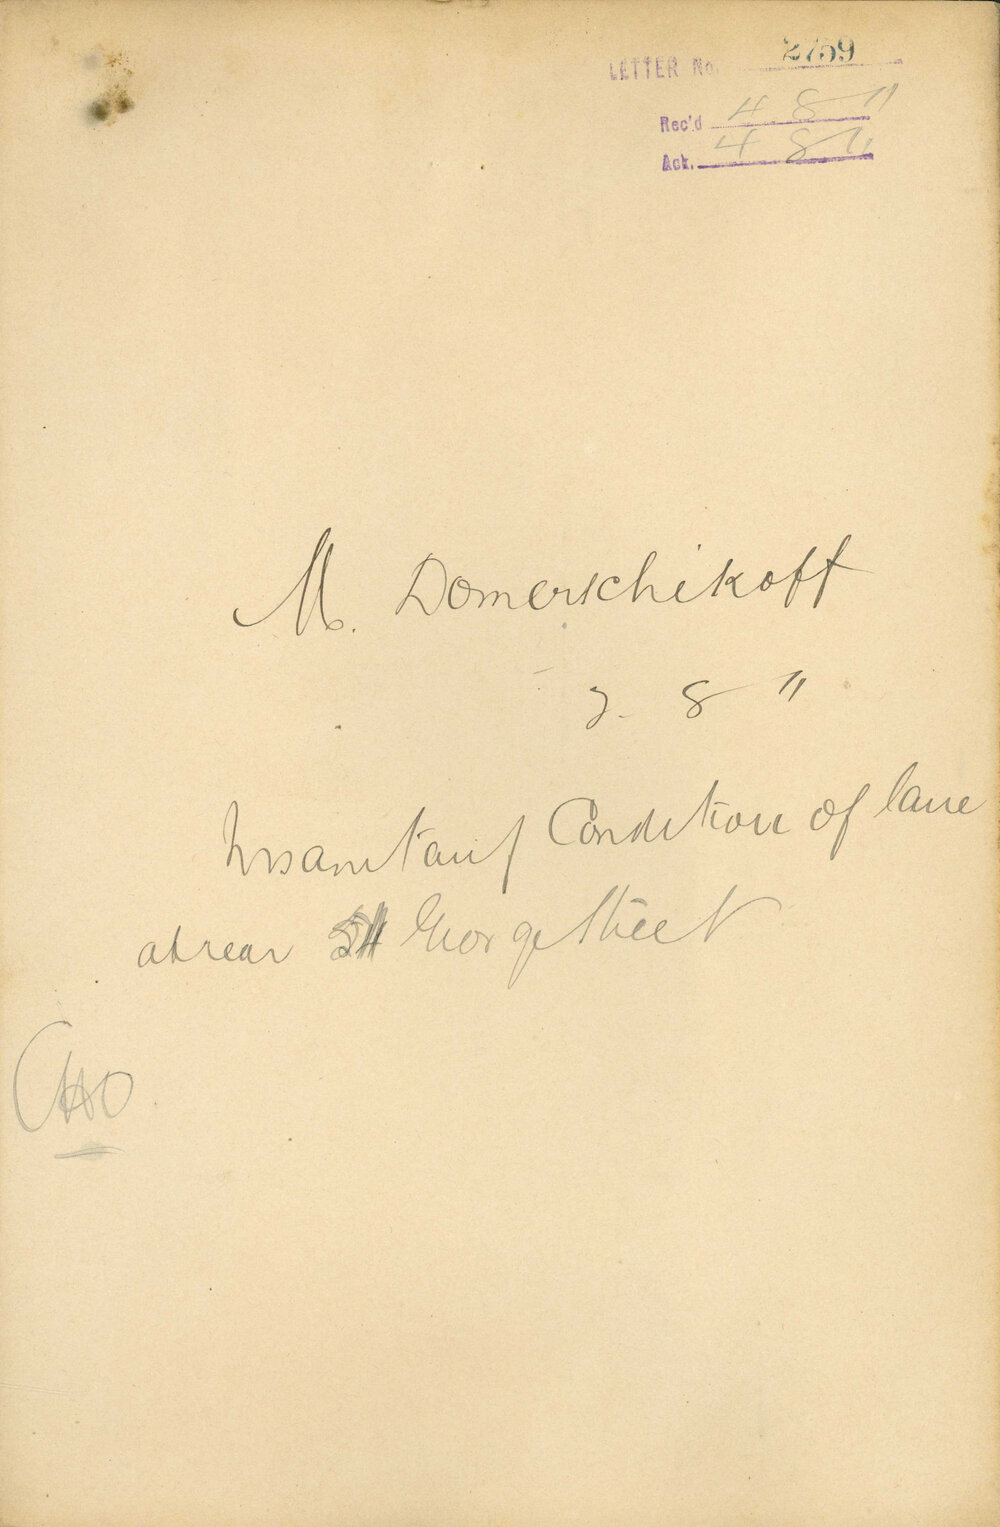 LETTER No. 2759
Rec'd 4 8 11
Ack. 4 8 11
M. Domerschikoff
2. 8 11
Insanitary Condition of lane
at rear George Street
CHO